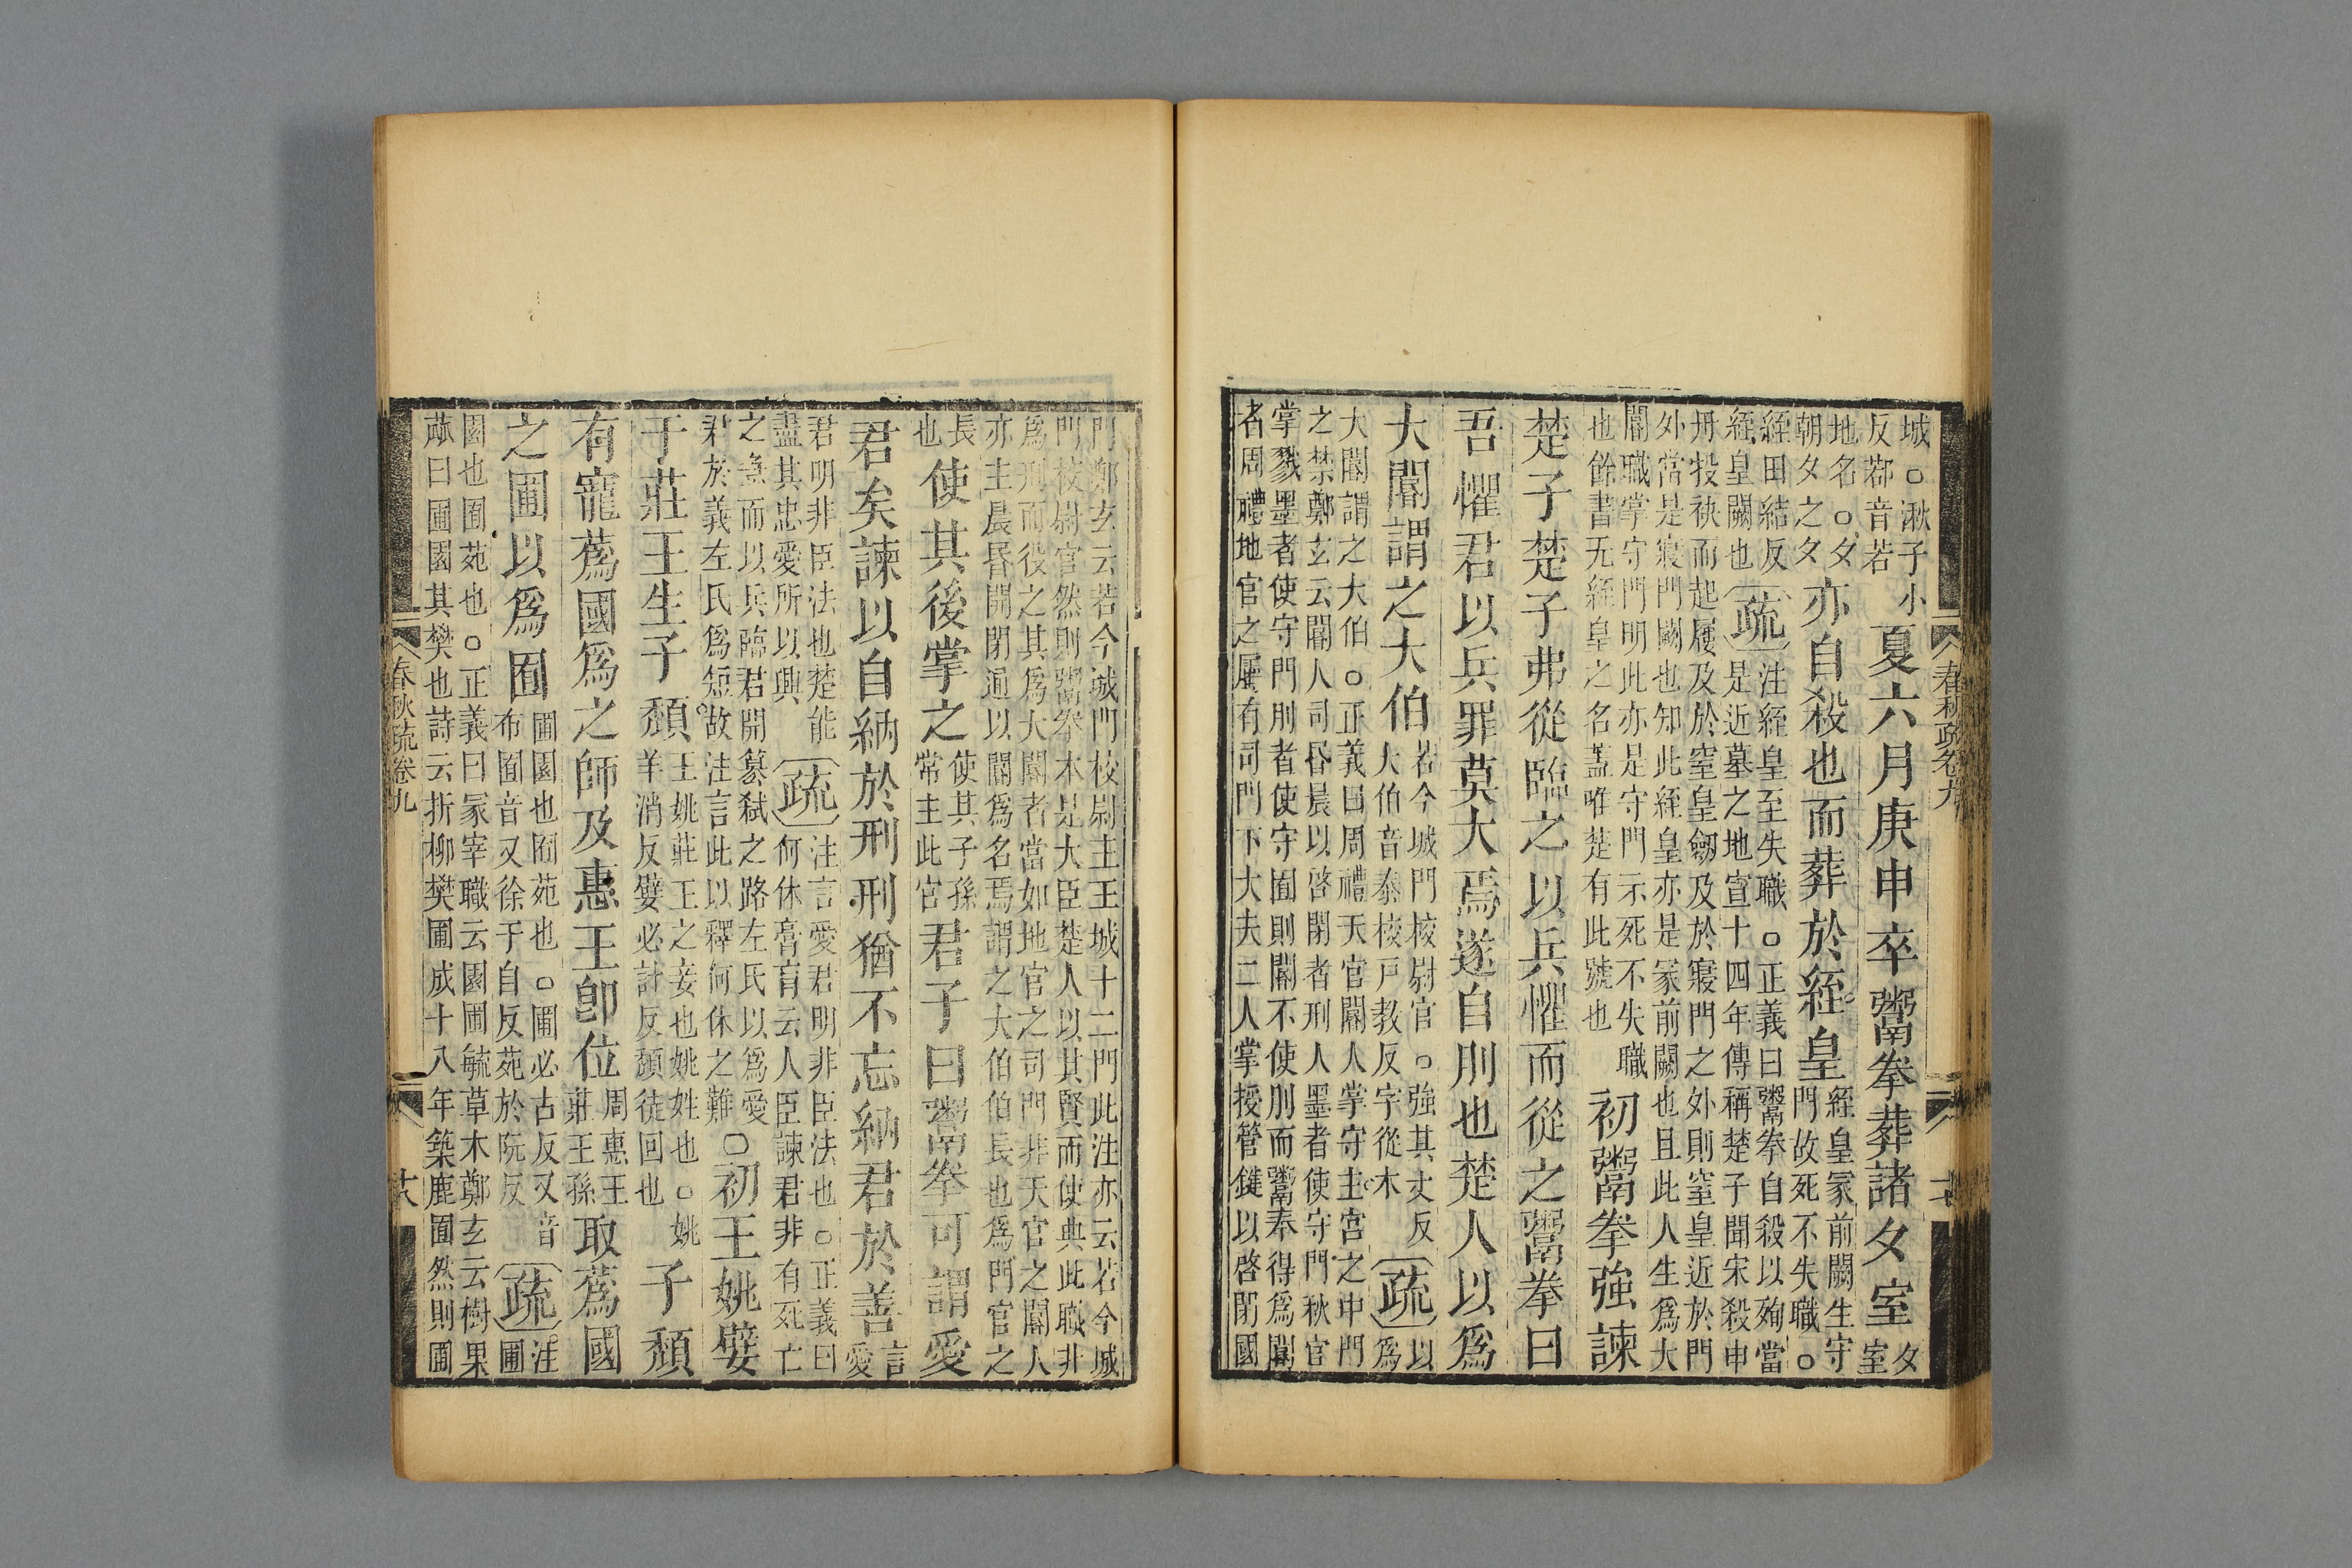 城○湫子小
反鄀音若
夏六月庚申卒鬻拳葬諸夕室
夕
室
地名○夕
朝夕之夕
亦自殺也而葬於絰皇
絰皇冢前闕生守
門故死不失職○
絰田結反
絰皇闕也
疏
注絰皇至失職○正義曰鬻拳自殺以殉當
是近墓之地宣十四年傳稱楚子聞宋殺申
舟投袂而起屨及於窒皇劒及於寢門之外則窒皇近於門
外當是寢門闕也知此絰皇亦是冢前闕也且此人生爲大
閽職掌守門明此亦是守門示死不失職
也餘書无絰皇之名蓋唯楚有此號也
初鬻拳強諫
楚子楚子弗從臨之以兵懼而從之鬻拳曰
吾懼君以兵罪莫大焉遂自刖也楚人以爲
大閽謂之大伯
若今城門校尉官○強其丈反
大伯音泰校戸教反字從木
疏
以
爲
大閽謂之大伯○正義曰周禮天官閽人掌守主宮之中門
之禁鄭玄云閽人司昏晨以啓閉者刑人墨者使守門秋官
掌戮墨者使守門刖者使守囿則閽不使刖而鬻奉得爲閽
者周禮地官之屬有司門下大夫二人掌授管鍵以啓閉國
春秋疏卷九
門鄭玄云若今城門校尉主王城十二門此注亦云若今城
門校尉官然則鬻拳本是大臣楚人以其賢而使典此職非
爲刑而役之其爲大閽者當如地官之司門非天官之閽人
亦主晨昏開閉通以閽爲名焉謂之大伯伯長也爲門官之
長
也
使其後掌之
使其子孫
常主此官
君子曰鬻拳可謂愛
君矣諫以自納於刑刑猶不忘納君於善
言
愛
君明非臣法也楚能
盡其忠愛所以興
疏
注言愛君明非臣法也○正義曰
何休膏肓云人臣諫君非有死亡
之急而以兵臨君開篡弑之路左氏以爲愛
君於義左氏爲短故注言此以釋何休之難
○初王姚嬖
于莊王生子頹
王姚莊王之妾也姚姓也○姚
羊消反嬖必計反頹徒回也
子頹
有寵蔿國爲之師及惠王卽位
周惠王
莊王孫
取蔿國
之圃以爲囿
圃園也囿苑也○圃必古反又音
布囿音又徐于自反苑於阮反
疏
注
圃
園也囿苑也○正義曰冢宰職云園圃毓草木鄭玄云樹果
蓏曰圃園其樊也詩云折柳樊圃成十八年築鹿囿然則圃
春秋疏卷九